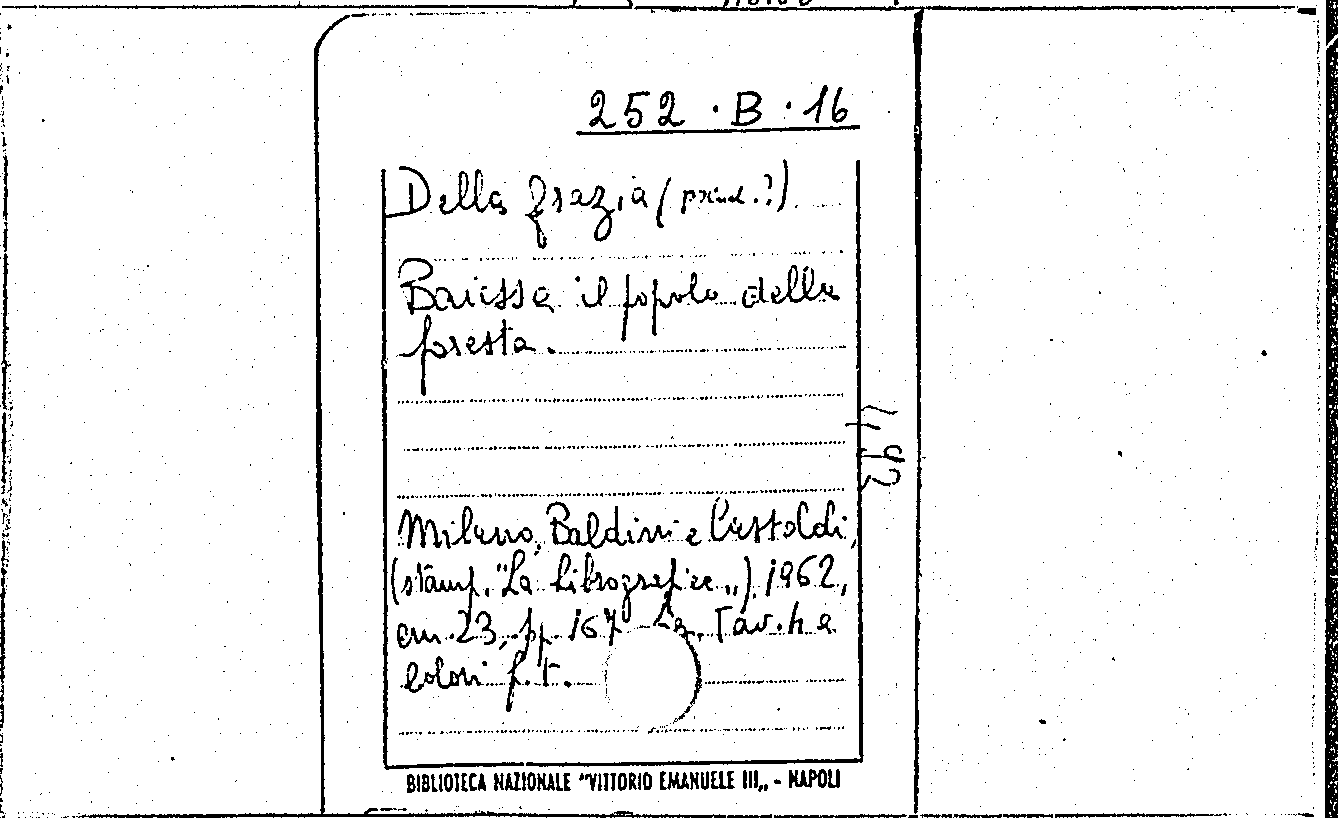 252 · B · 16
Della frazia (pseud.?)
Baiessa il popolo della
foresta.
4,92
Milano, Baldini e Castoldi,
(stamp. "La Librografica„) 1962,
cm. 23, pp. 167 Tav. h a
colori f.t.
BIBLIOTECA NAZIONALE "VITTORIO EMANUELE III„ - NAPOLI